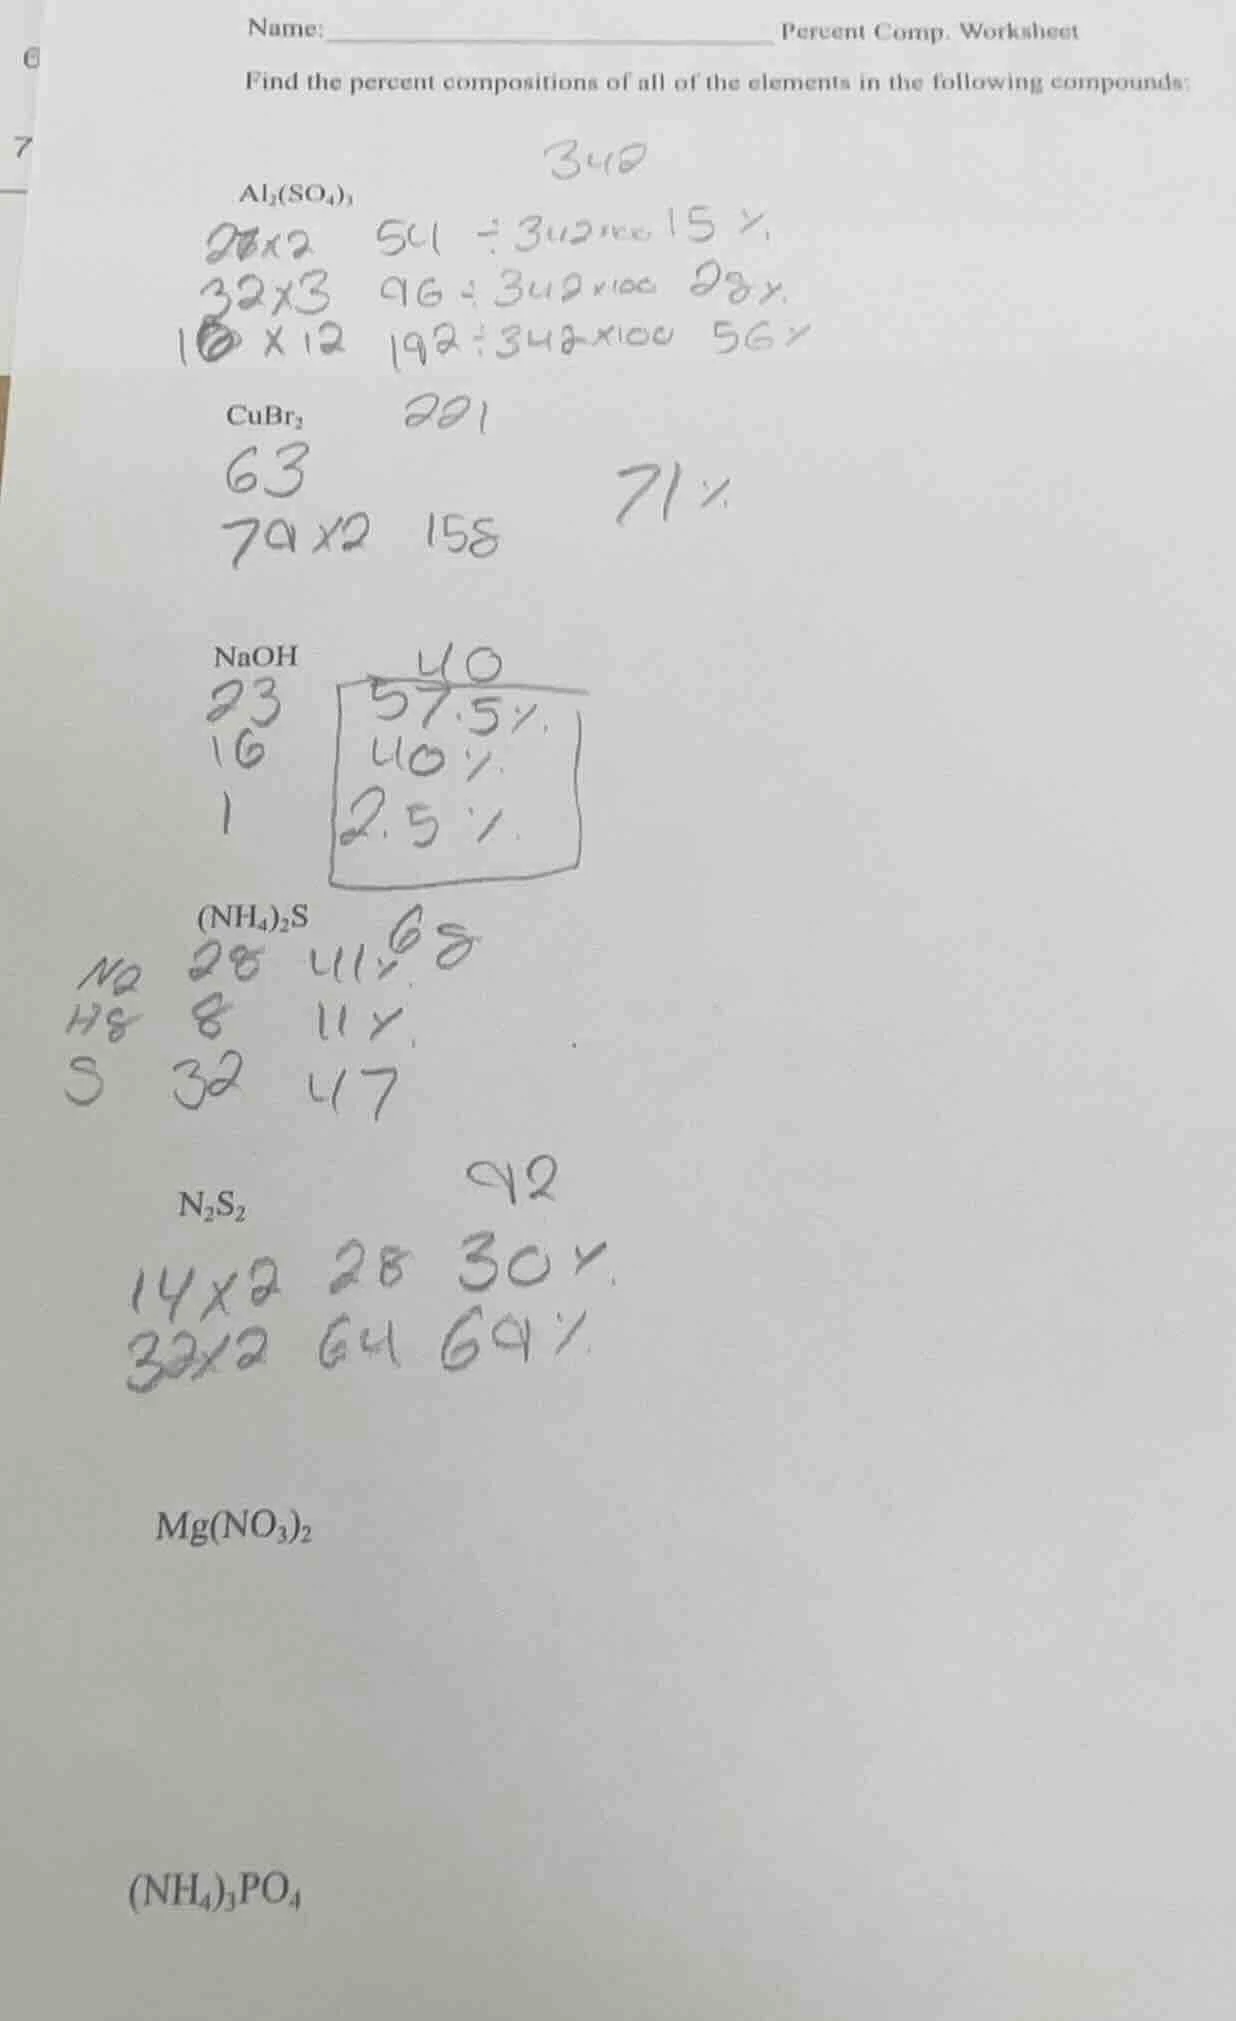 6
7
Name: Percent Comp. Worksheet
Find the percent compositions of all of the elements in the following compounds:
342
Al₂(SO₄)₃
27x2 54 ÷ 342x100 15 %
32x3 96 ÷ 342x100 28%
16 x 12 192 ÷ 342x100 56%
CuBr₂ 221
63
71%
79x2 158
NaOH 40
23 57.5%
16 40%
1 2.5%
(NH₄)₂S 68
N2 28 41%
H8 8 11%
S 32 47
92
N₂S₂
14x2 28 30%
32x2 64 69%
Mg(NO₃)₂
(NH₄)₃PO₄